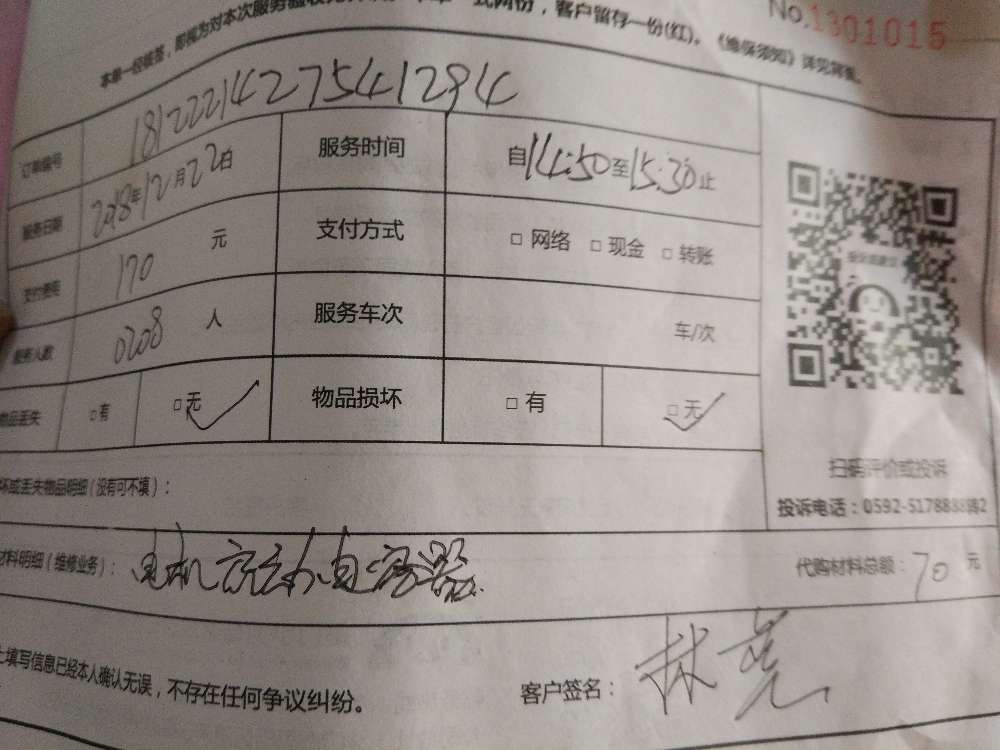 No.1301015
本单一经核签，即视为对本次服务验收
式两份，客户留存一份(红)。《维保须知》详见背面。
订单编号 1812221427541294
服务日期 2018年12月22日 服务时间 自14:50至15:30止
支付费用 170 元 支付方式 □ 网络 □ 现金 □ 转账
服务人数 0208 人 服务车次 车/次
物品丢失 □有 □无 物品损坏 □ 有 □ 无
扫码评价或投诉
坏或丢失物品明细（没有可不填）：
投诉电话：0592-5178888
材料明细（维修业务）： 电机 电容器
代购材料总额： 70 元
上填写信息已经本人确认无误，不存在任何争议纠纷。
客户签名： 林亮